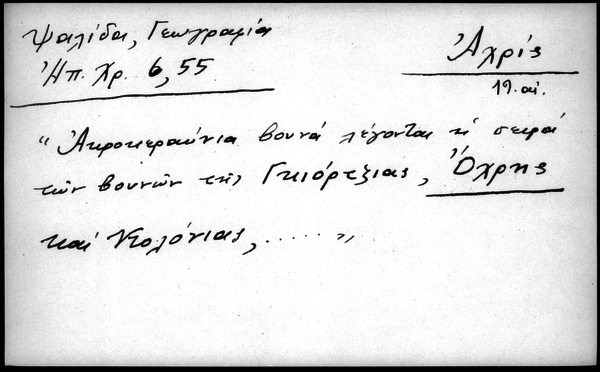 Ψαλίδα, Γεωγραφία
Ἠπ. Χρ. 6, 55
Ἀχρίς
19. αἰ.
“Ἀκροκεραύνια βουνά λέγονται ἡ σειρά
τῶν βουνῶν τῆς Γκιόρτξιας, Ὄχρης
καί Κολόνιας, ..... „